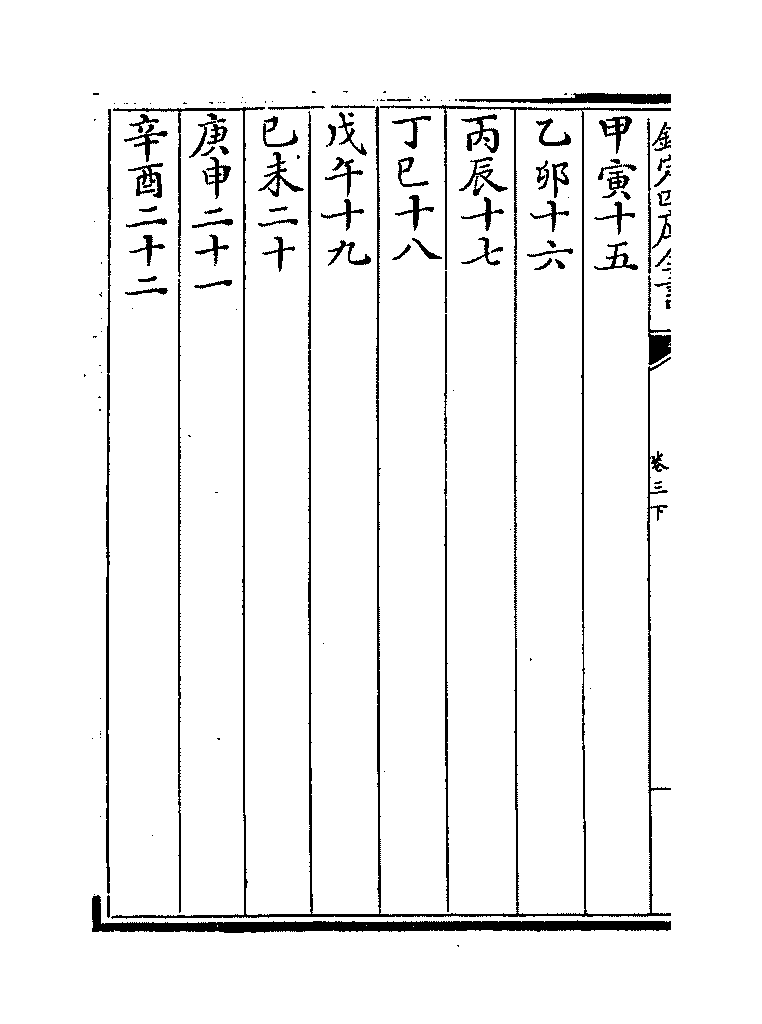 欽定四庫全書
卷三下
甲寅十五
乙卯十六
丙辰十七
丁巳十八
戊午十九
己未二十
庚申二十一
辛酉二十二